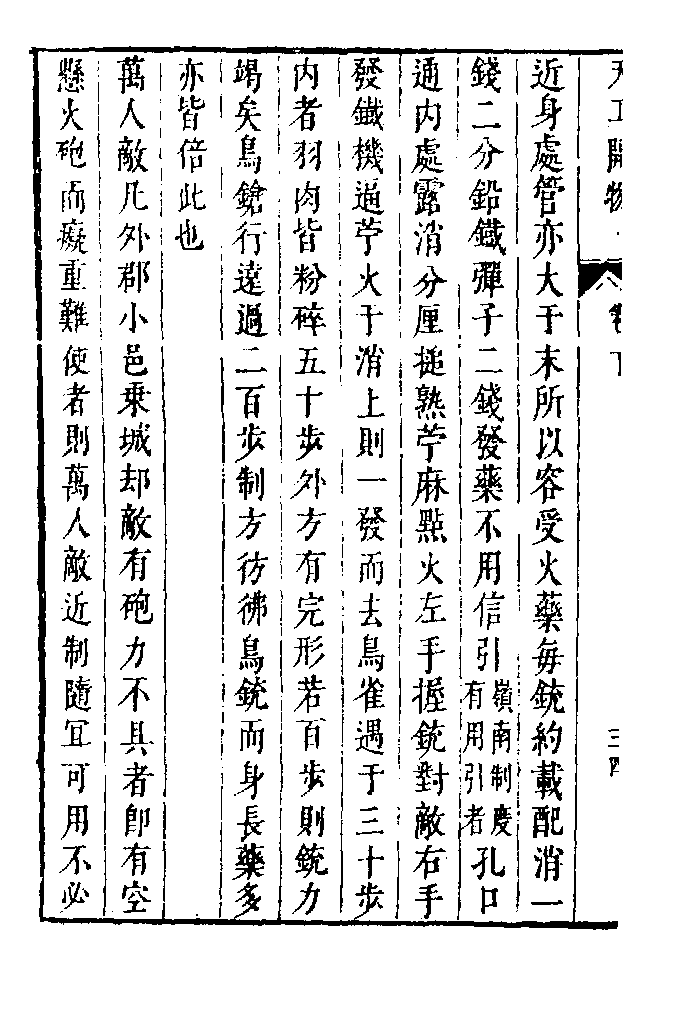 天工開物 卷下 三四
近身處管亦大于末所以容受火藥毎銃約載配消一
錢二分鉛鐵彈子二錢發藥不用信引嶺南制度有用引者孔口
通內處露消分厘搥熟苧麻點火左手握銃對敵右手
發鐵機逼苧火于消上則一發而去鳥雀遇于三十步
內者羽肉皆粉碎五十步外方有完形若百步則銃力
竭矣鳥鎗行遠過二百步制方彷彿鳥銃而身長藥多
亦皆倍此也
萬人敵凡外郡小邑乘城却敵有砲力不具者即有空
懸火砲而癡重難使者則萬人敵近制隨冝可用不必